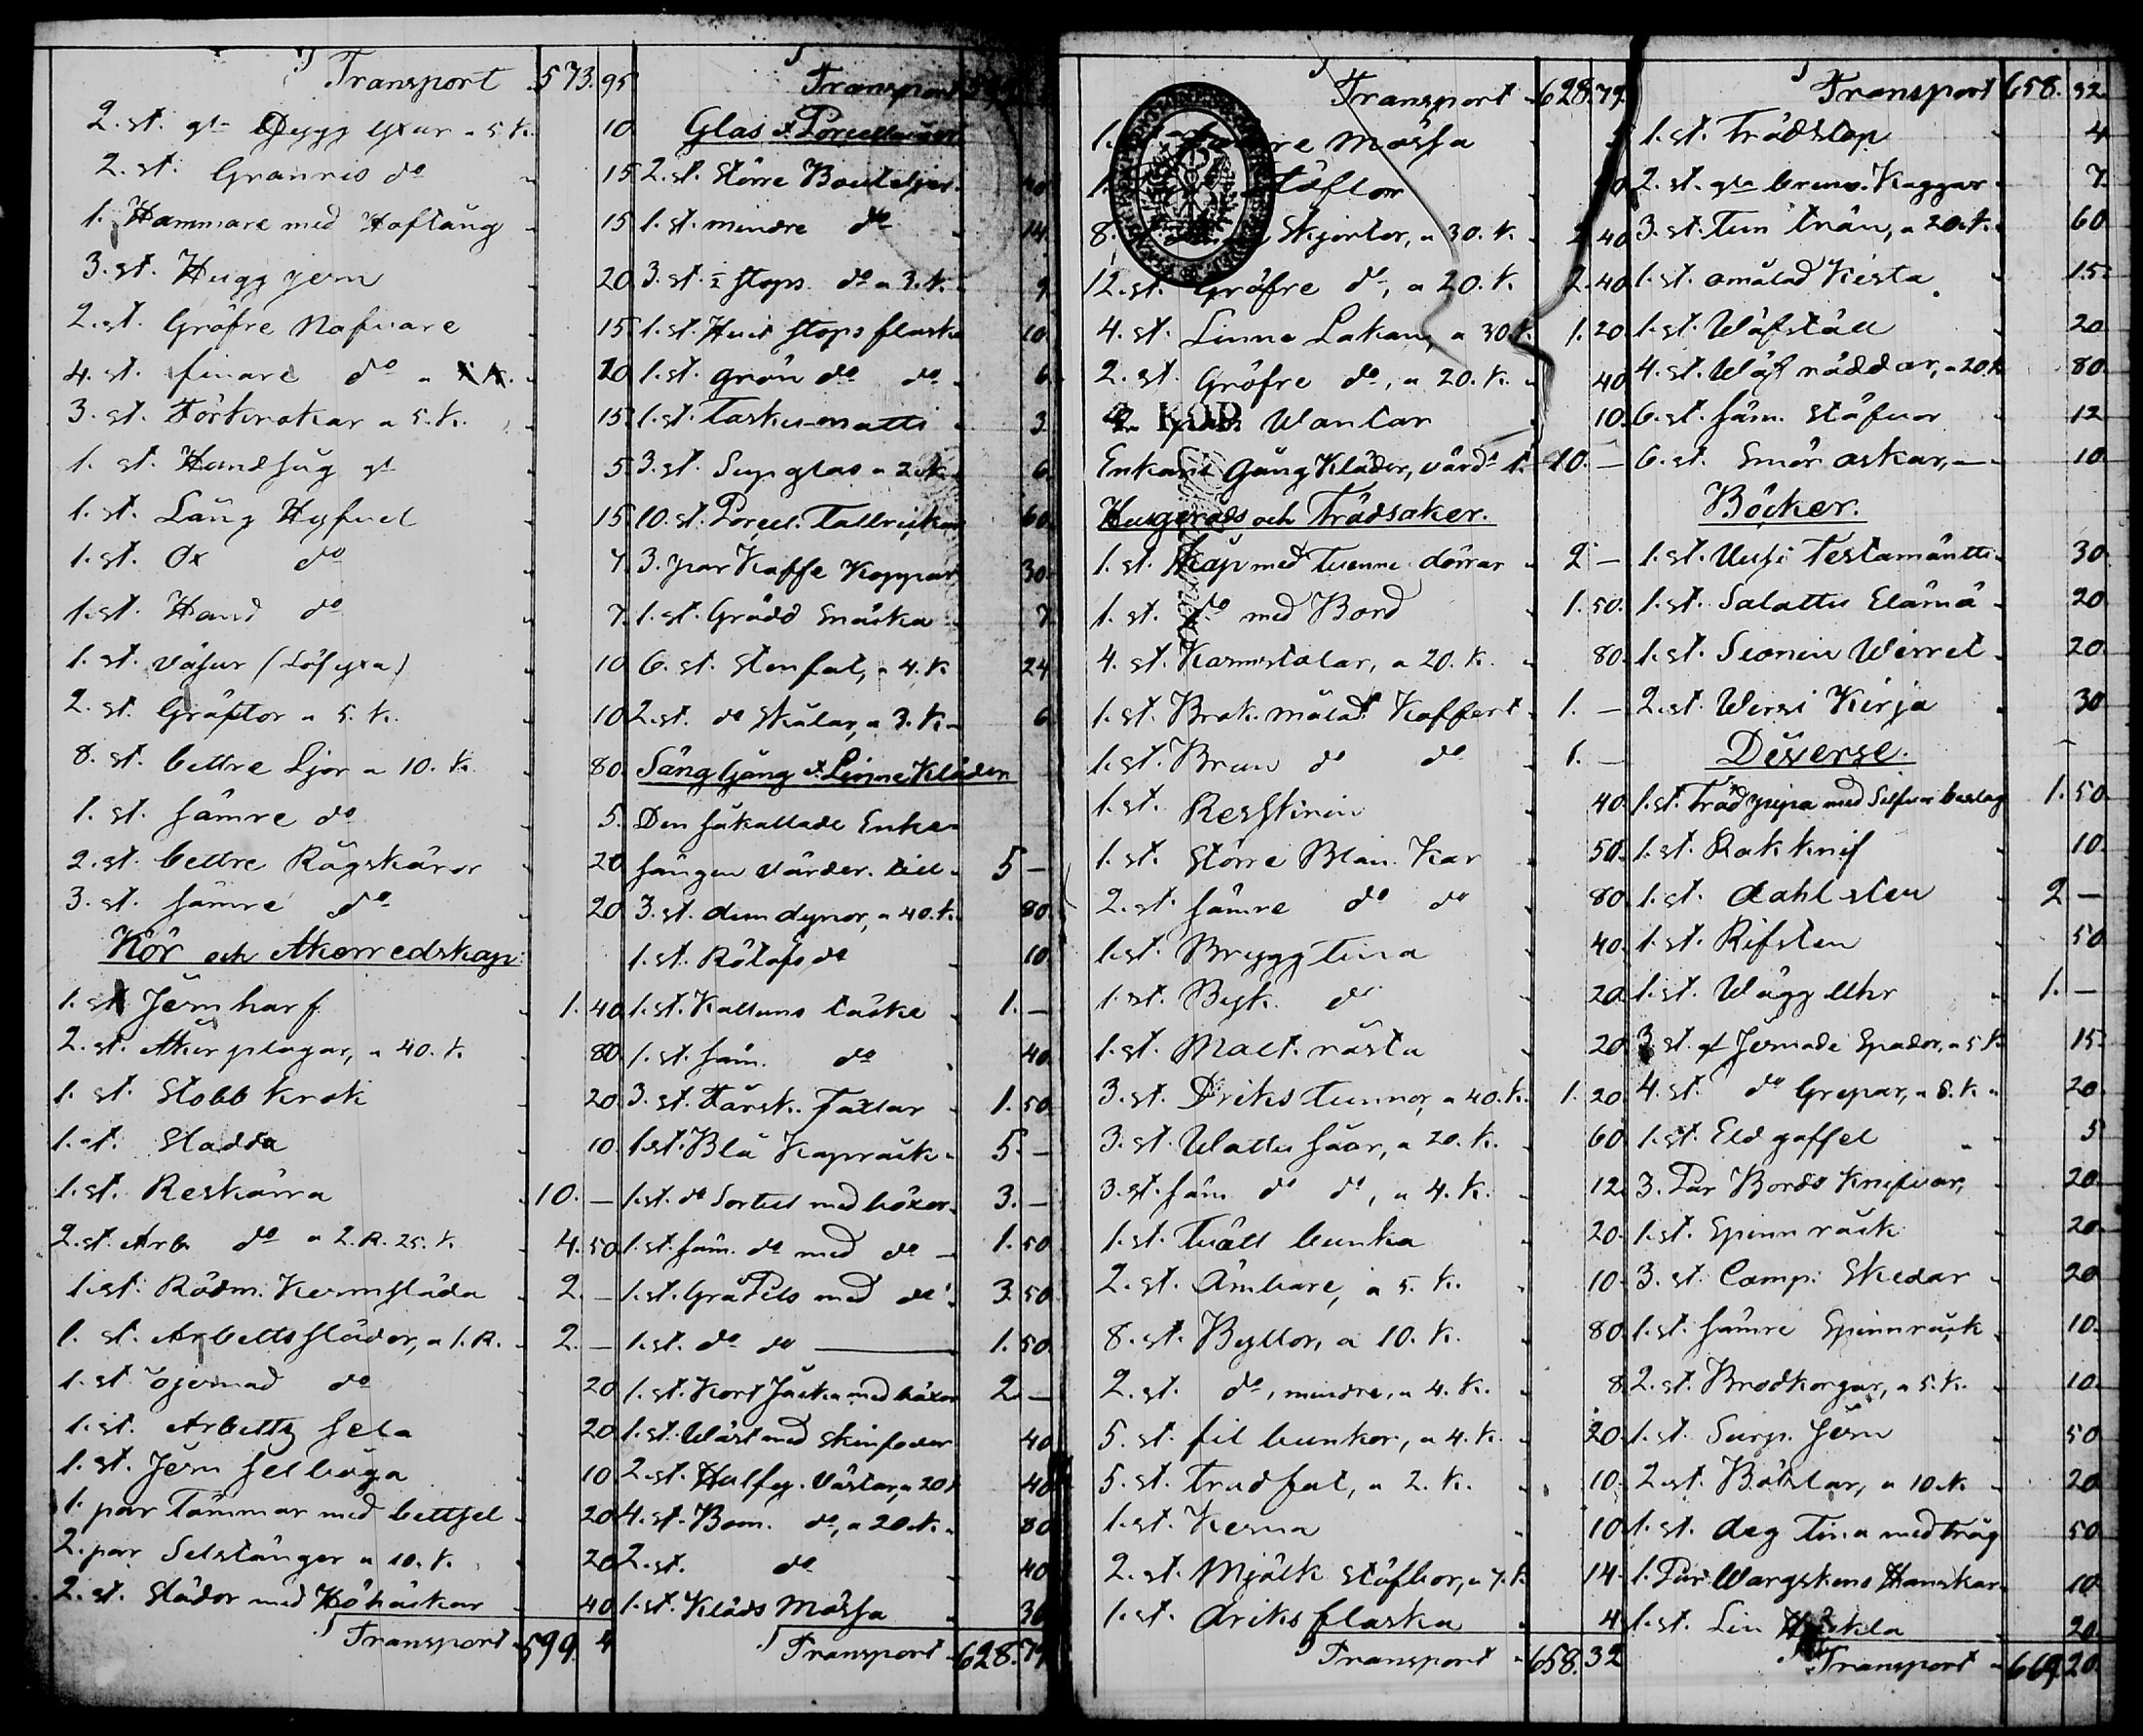 Transport 573. 95
2. st. gla Bygg yxur a 5. K. 10
2. st. Granris do 15
1. Hammare med Hoftång 15
3. st. Hugg jern 20
2. st. Gröfre Nafvare 15
4. st. finare do a 20
3. st. Torkrokar a 5. K. 15
1. st. Handsåg gl 5
1. st. Lång Hyfvel 15
1. st. Ox do 7
1. st. Hand do 7
1. st. Väsur (Löfyxa) 10
2. st. Gräftor a 5. K. 10
8. st. bettre Ljor a 10. K. 80
1. st. sämre do 5
2. st. bettre Rågskäror 20
3. st. sämre do 20
Kör och Åkerredskap
1. st. Jernharf 1. 40
2. st. Åkerplogar, a 40. K. 80
1. st. Stobb krok 20
1. st. Sladda 10
1. st. Reskärra 10. —
2. st. Arb. do a 2. R. 25. K. 4. 50
1. st. Rödm. Kermsläda 2. —
1. st. Arbettsslädor, a 1. R. 2. —
1. st. ojernad do 20
1. st. Arbetts sela 20
1. st. Jern selbåga 10
1. par Tömmar med bettsel 20
2. par Selstänger a 10. K. 20
2. st. Slädor med Höhäckar 40
Transport 599. 4
Transport
Glas & Porcellainer
2. st. Större Bouteljer 40
1. st. mindre do 14
3. st. ½ stops do a 3. K. 9
1. st. Hvit stops flaska 10
1. st. grön do do 6
1. st. Tasku-matti 3
3. st. Supglas a 2. K. 6
10. st. Porcel. Tallrickar 60
3. par Kaffe Koppar 30
1. st. Grädd Snäcka 7
6. st. Stenfat, a 4. K. 24
2. st. do Skålar, a 3. K. 6
Säng Gång & Linne Kläder
Den såkallade Enke-
sängen värder. till 5 —
3. st. dundynor, a 40. K. 80
1. st. Rölafs do 10
1. st. Kattuns täcke 1. —
1. st. säm. do 40
3. st. Fårsk. Fällar 1. 50
1. st. Blå Kaprock 5. —
1. st. do Sortut med böxor 3. —
1. st. säm. do med do 1. 50
1. st. Grå Pels med do 3. 50
1. st. do do 1. 50
1. st. Kort Jacka med böxor 2. —
1. st. Wäst med skinfoder 40
2. st. Halfy. Västar, a 20 K 40
4. st. Bom. do, a 20. K. 80
2. st. do 40
1. st. Kläds Mössa 30
Transport 628. 79
Transport 628. 79
1. st. re Mössa
1. Stöflor
8. st. Skjortor, a 30. K. 2. 40
12. st. Gröfre do, a 20. K. 2. 40
4. st. Linne Lakan, a 30 K. 1. 20
2. st. Gröfre do, a 20. K. 40
2. KOP. Wantar 10
Enkans Gång Kläder, värd. t. 10. —
Husgeråds och Trädsaker.
1. st. Skåp med Tvenne dörrar 2 —
1. st. do med Bord 1. 50
4. st. Karmstolar, a 20. K. 80
1. st. Brok. målad Koffert 1. —
1. st. Brun do do 1. —
1. st. Resskrin 40
1. st. Större Blan. Kar 50
2. st. sämre do do 80
1. st. Brygg Tina 40
1. st. Byk. do 20
1. st. Malt. råsta 20
3. st. Driks Tunnor, a 40. K. 1. 20
3. st. Wattu såar, a 20. K. 60
3. st. säm do do, a 4. K. 12
1. st. Tvätt bunka 20
2. st. Ämbare, a 5. K. 10
8. st. Byttor, a 10. K. 80
2. st. do, mindre, a 4. K. 8
5. st. fil bunkor, a 4. K. 20
5. st. Trädfat, a 2. K. 10
1. st. Kerna 10
2. st. Mjölk stäfvor, a 7. K. 14
1. st. driks flaska 4
Transport 658. 32
Transport 658. 32
1. st. Trädstop 4
2. st. gla brenv. Kaggar 7
3. st. Tun Trän, a 20. K. 60
1. st. omålad Kista 15
1. st. Wäfställ 20
4. st. Wäf räddar, a 20. K 80
6. st. säm. Stäfvor 12
6. st. Smör askar, — 10
Böcker.
1. st. Uusi Testamäntti 30
1. st. Salattu Elämä 20
1. st. Sionin Wirret 20
2. st. Wirsi Kirja 30
Diverse.
1. st. Trädpipa med Silfver beslag 1. 50
1. st. Rak knif 10
1. st. dahlsten 2 —
1. st. Rifsten 50
1. st. Wägg Uhr 1. —
3. st. gl Jernade Spador, a 5 K 15
4. st. do Grepar, a 5. K. 20
1. st. Eldgaffel 5
3. Par Bords Knifvar, 20
1. st. Spinn råck 20
3. st. Comp. Skedar 20
1. st. sämre Spinnråck 10
2. st. Brödkorgar, a 5. K. 10
1. st. Surp. Jern 50
2. st. Båtslar, a 10. K. 20
1. st. deg Tina med tråg 50
1. Par Wargskins Hanskar 10
1. st. Lin Häckla 20
Transport 669. 20